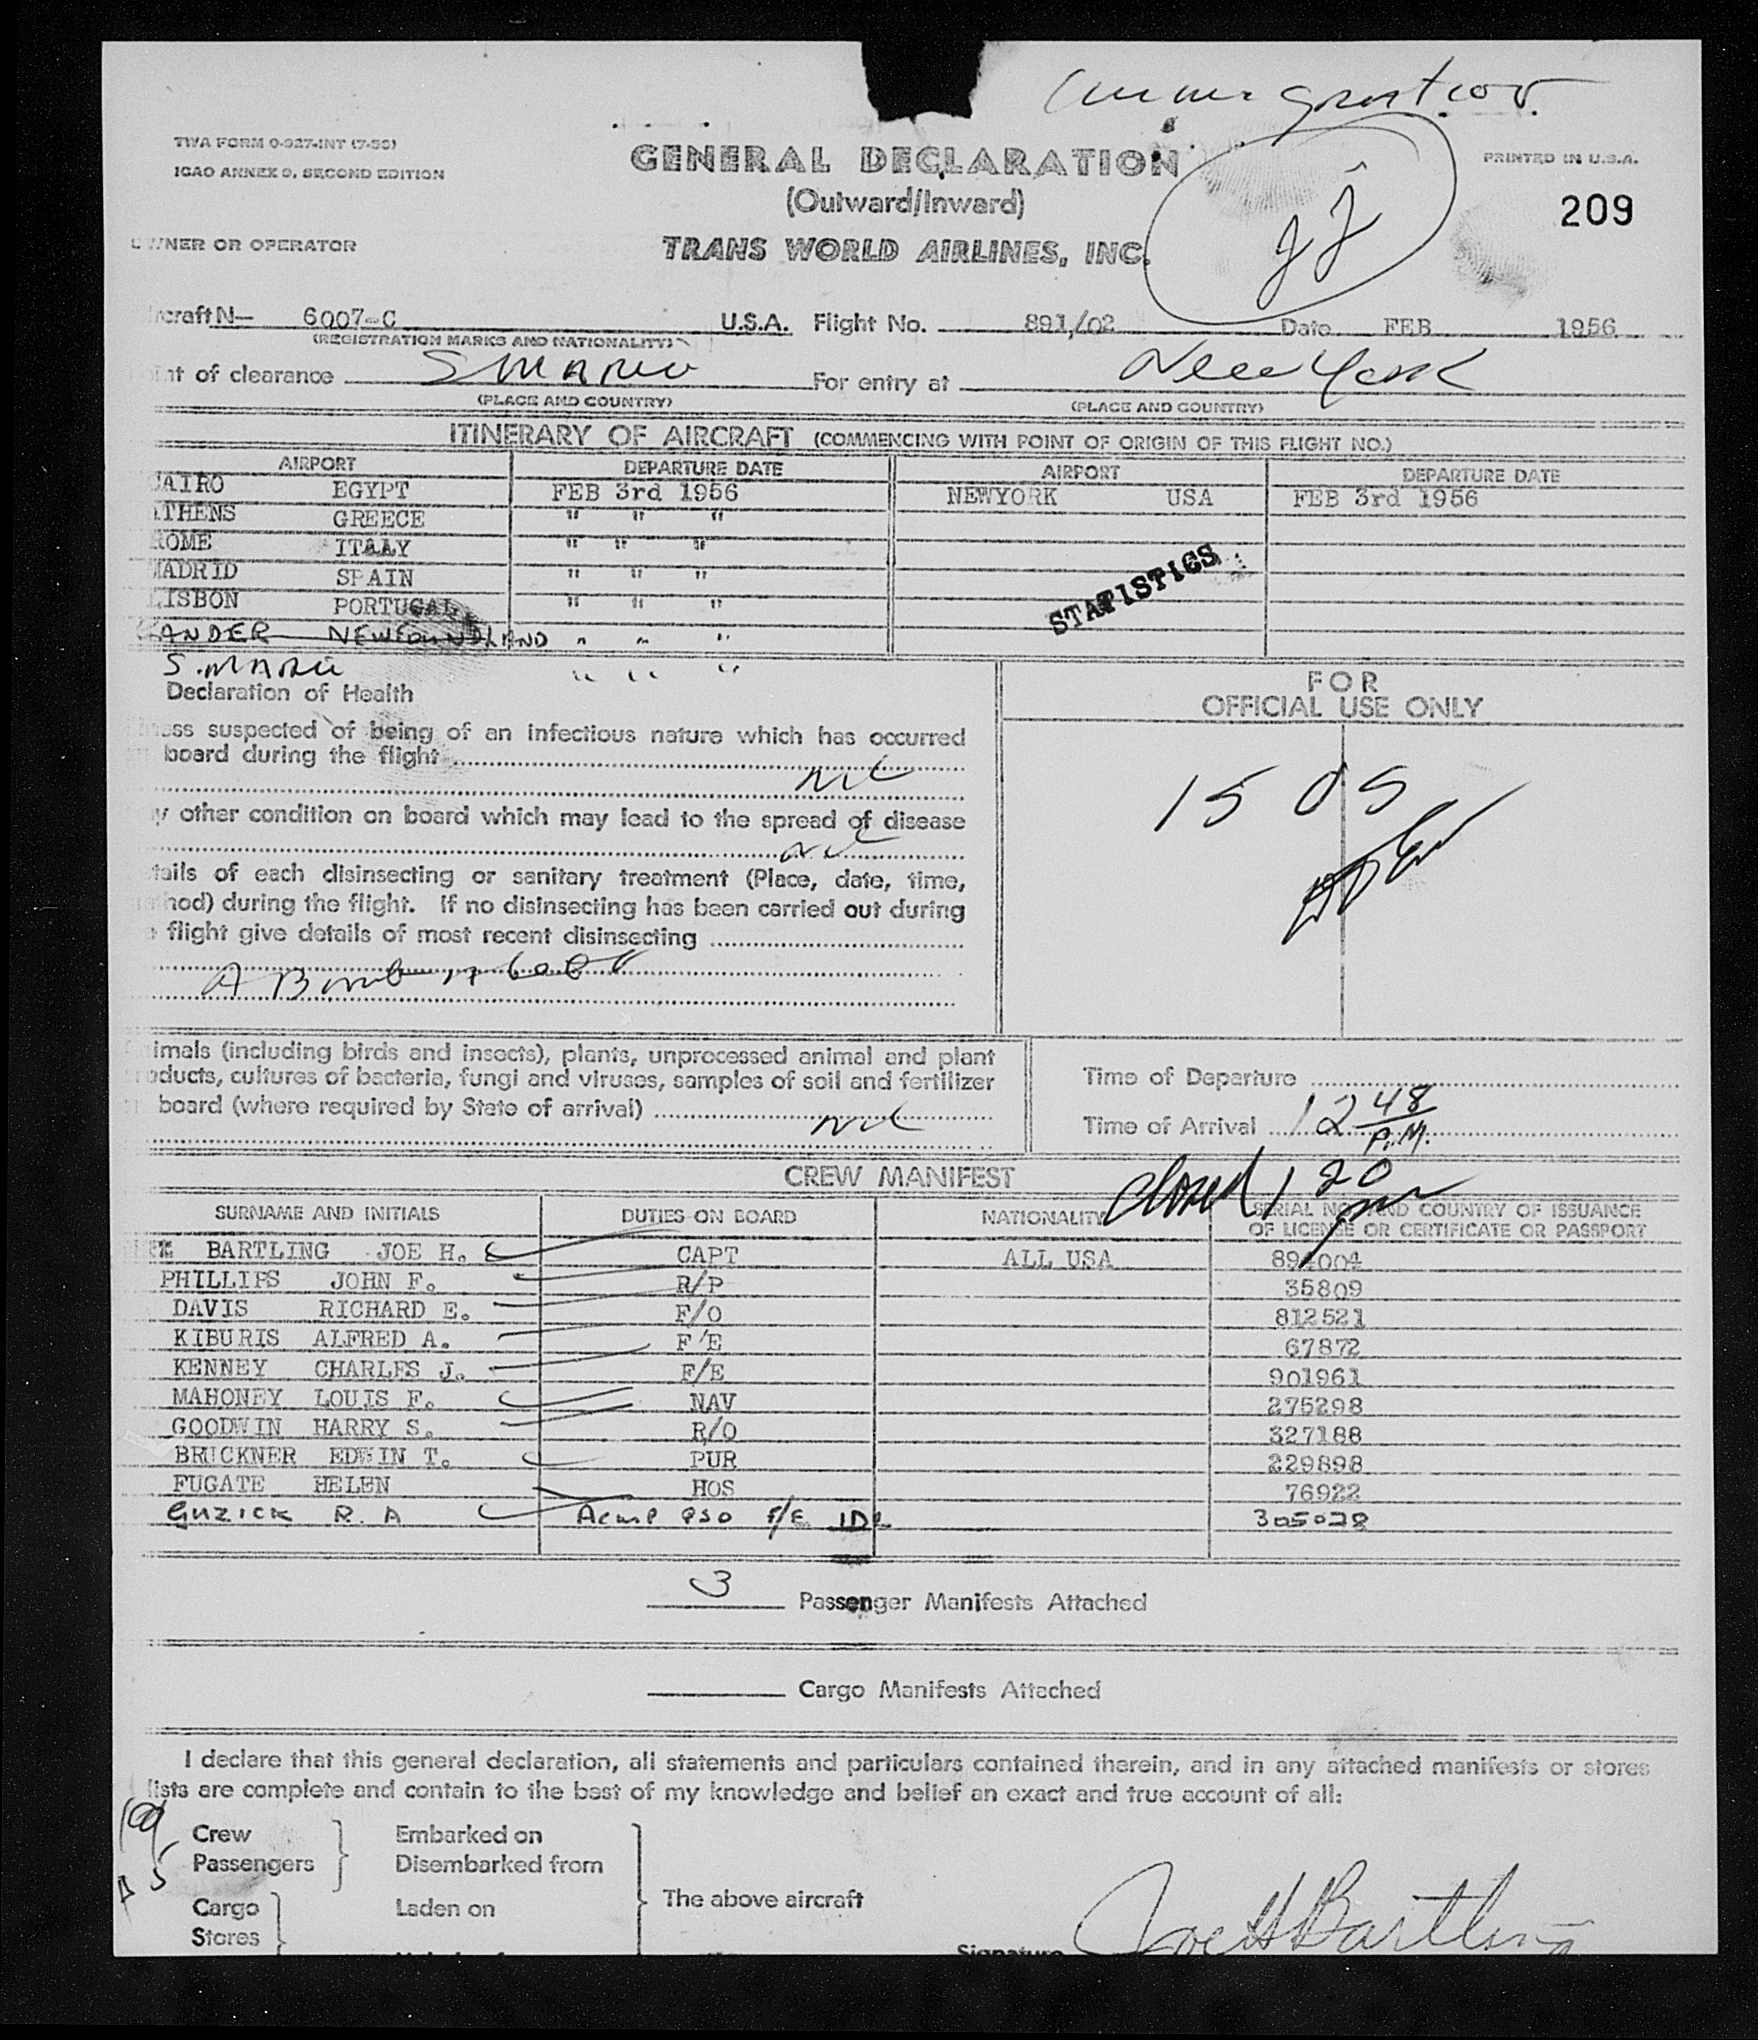 Immigration
TWA FORM 0-927-INT (7-55)
ICAO ANNEX 9, SECOND EDITION
GENERAL DECLARATION
(Outward/Inward)
PRINTED IN U.S.A.
209
OWNER OR OPERATOR
TRANS WORLD AIRLINES, INC.
craft N— 6007-C U.S.A. Flight No. 891/02 Date FEB 1956
(REGISTRATION MARKS AND NATIONALITY)
int of clearance S MARIA For entry at New York
(PLACE AND COUNTRY) (PLACE AND COUNTRY)
ITINERARY OF AIRCRAFT (COMMENCING WITH POINT OF ORIGIN OF THIS FLIGHT NO.)
AIRPORT DEPARTURE DATE AIRPORT DEPARTURE DATE
CAIRO EGYPT FEB 3rd 1956 NEWYORK USA FEB 3rd 1956
ATHENS GREECE " " "
ROME ITAAY " " "
MADRID SPAIN " " "
LISBON PORTUGAL " " "
GANDER NEWFOUNDLAND " " "
STATISTICS
S. MARIA " " "
Declaration of Health
FOR
OFFICIAL USE ONLY
ness suspected of being of an infectious nature which has occurred
board during the flight
nil
y other condition on board which may lead to the spread of disease
nil
tails of each disinsecting or sanitary treatment (Place, date, time,
hod) during the flight. If no disinsecting has been carried out during
flight give details of most recent disinsecting
A Bomb
15 05
imals (including birds and insects), plants, unprocessed animal and plant
oducts, cultures of bacteria, fungi and viruses, samples of soil and fertilizer
board (where required by State of arrival) nil
Time of Departure
Time of Arrival 12 48 P.M.
CREW MANIFEST
Closed 1 20 pm
SURNAME AND INITIALS DUTIES ON BOARD NATIONALITY SERIAL NO. AND COUNTRY OF ISSUANCE
OF LICENSE OR CERTIFICATE OR PASSPORT
BARTLING JOE H. CAPT ALL USA 894004
PHILLIPS JOHN F. R/P 35809
DAVIS RICHARD E. F/O 812521
KIBURIS ALFRED A. F/E 67872
KENNEY CHARLES J. F/E 901961
MAHONEY LOUIS F. NAV 275298
GOODWIN HARRY S. R/O 327188
BRUCKNER EDWIN T. PUR 229898
FUGATE HELEN HOS 76922
GUZICK R. A F/E 305028
3 Passenger Manifests Attached
Cargo Manifests Attached
I declare that this general declaration, all statements and particulars contained therein, and in any attached manifests or stores
lists are complete and contain to the best of my knowledge and belief an exact and true account of all:
Crew Embarked on
Passengers Disembarked from
The above aircraft
Cargo Laden on
Stores
Signature Joe H Bartling